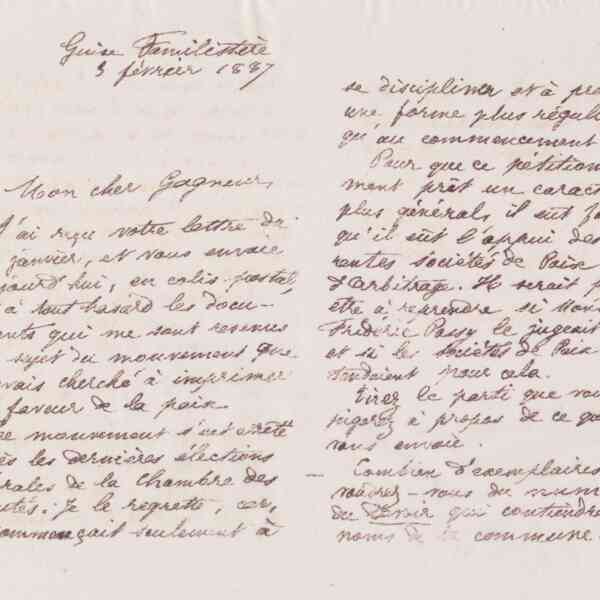 Guise Familistère
3 février 1887
Mon cher Gagneur,
J'ai reçu votre lettre du
janvier, et vous envoie
jourd'hui, en colis postal,
à tout hasard les docu-
ents qui me sont revenus
sujet du mouvement que
avais cherché à imprimer
faveur de la paix.
e mouvement s'est arrêté
ès les dernières élections
rales de la Chambre des
utés. Je le regrette, car,
ommençait seulement à
se discipliner et à pre
une forme plus réguli
qu'au commencement
Pour que ce pétition
ment prît un carac
plus général, il eût fa
qu'il eût l'appui des
rentes sociétés de Paix
d'arbitrage. Il serait p
être à reprendre si Mon
Frédéric Passy le jugeait
et si les sociétés de Paix
tendaient pour cela.
Tirez le parti que vou
jugerez à propos de ce qu
vous envoie.
Combien d'exemplaires
voudrez-vous du num
du Devoir qui contiendr
noms de la commune